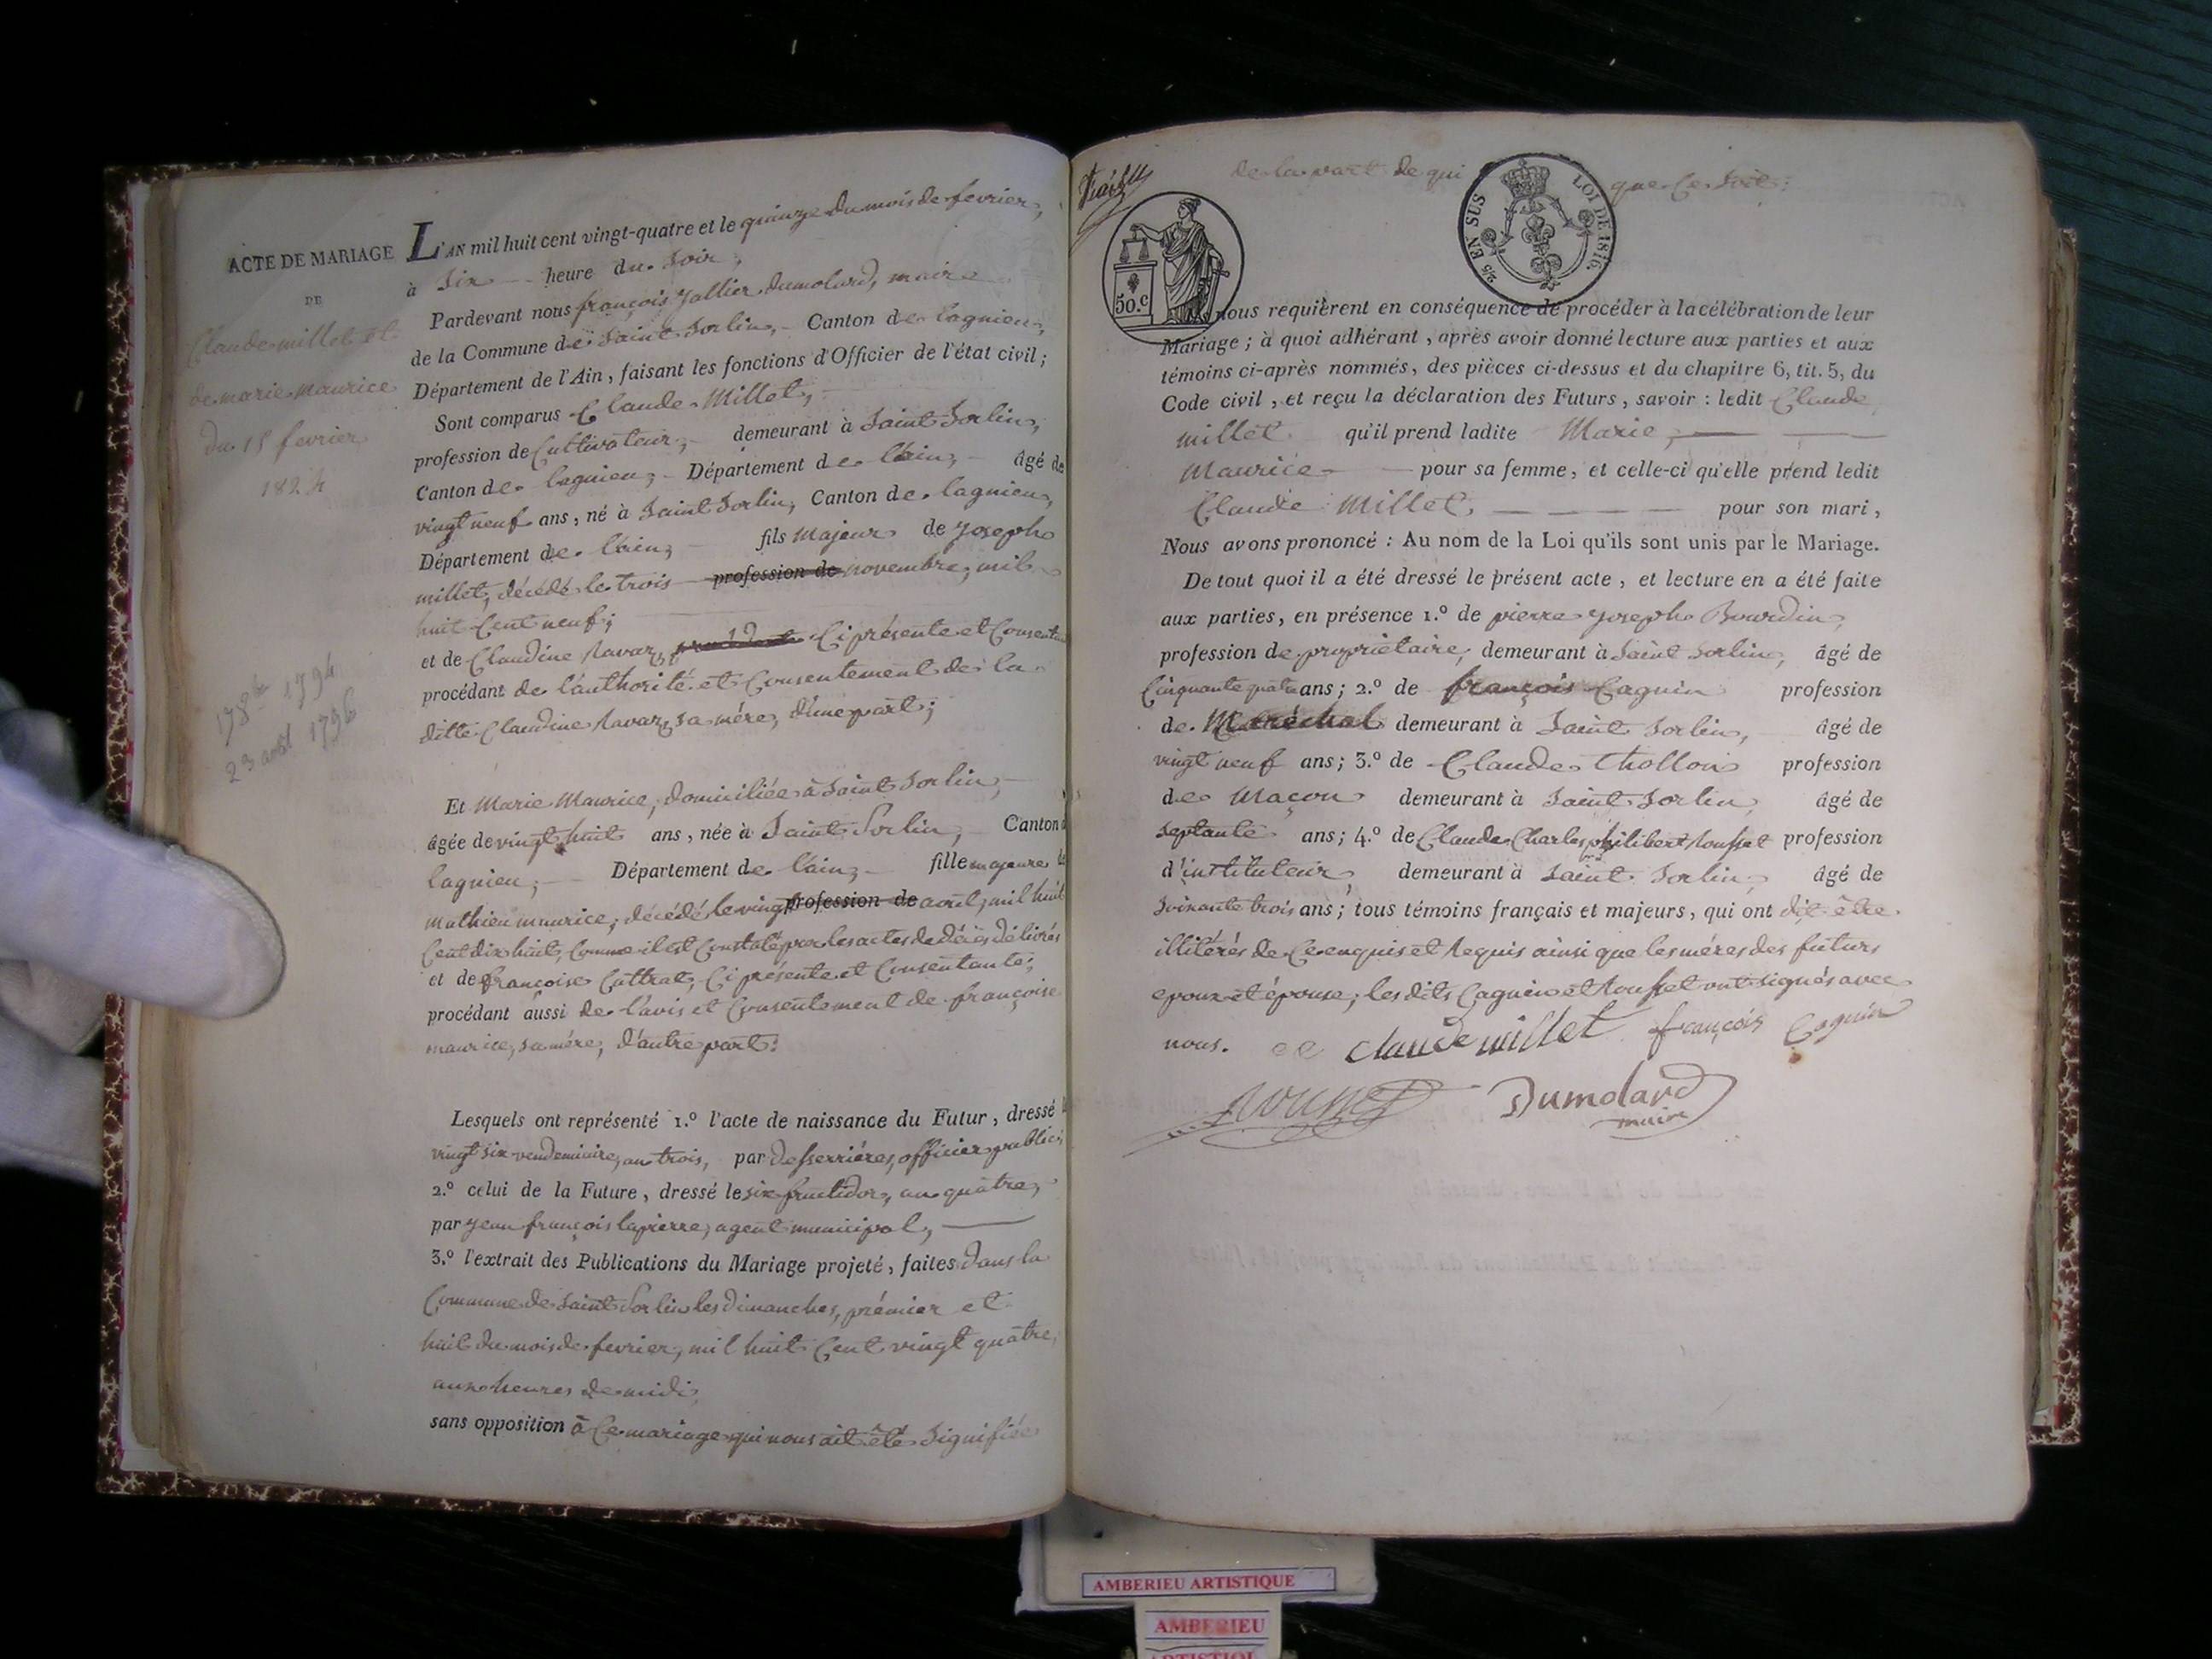 ACTE DE MARIAGE
DE
Claude millet et
de marie maurice
du 15 fevrier
1824
1794
23 août 1796
L'AN mil huit cent vingt-quatre et le quinze du mois de fevrier,
à Six heure du Soir,
Pardevant nous françois Jallier Dumolard, maire
de la Commune de Saint Sorlin, Canton de lagnieu,
Département de l'Ain, faisant les fonctions d'Officier de l'état civil;
Sont comparus Claude Millet,
profession de Cultivateur, demeurant à Saint Sorlin,
Canton de lagnieu, Département de l'ain, âgé de
vingt neuf ans, né à Saint Sorlin, Canton de lagnieu,
Département de l'ain, fils Majeur de joseph
millet, décédé le trois profession de novembre, mil
huit Cent neuf;
et de Claudine Ravaz, Ci présente et Consentante
procédant de l'authorité et Consentement de la
ditte Claudine Ravaz, sa mére, d'une part;
Et Marie Maurice, domiciliée à Saint Sorlin,
âgée de vingt huit ans, née à Saint Sorlin, Canton
lagnieu, Département de l'ain, fille majeure de
mathieu maurice, décédé le vingt profession de août, mil huit
Cent dix huit, Comme il est Constaté par les actes de décès délivrés
et de françoise Cattrat, Ci présente et Consentante,
procédant aussi de l'avis et Consentement de françoise
maurice, sa mére, d'autre part:
Lesquels ont représenté 1.º l'acte de naissance du Futur, dressé le
vingt six vendemiaire, an trois, par Desserriéres, officier public,
2.º celui de la Future, dressé le six fructidor, an quâtre,
par jean françois lapierre, agent municipal,
3.º l'extrait des Publications du Mariage projeté, faites dans la
Commune de Saint Sorlin les dimanches, prémier et
huit du mois de fevrier, mil huit Cent vingt quâtre,
aux heures de midi
sans opposition à Ce mariage qui nous ait été Signifiée
de la part de qui que Ce soit;
50.c
2/5 EN SUS
LOI DE 1816.
Nous requièrent en conséquence de procéder à la célébration de leur
Mariage; à quoi adhérant, après avoir donné lecture aux parties et aux
témoins ci-après nommés, des pièces ci-dessus et du chapitre 6, tit. 5, du
Code civil, et reçu la déclaration des Futurs, savoir: ledit Claude
millet qu'il prend ladite Marie,
Maurice pour sa femme, et celle-ci qu'elle prend ledit
Claude Millet, pour son mari,
Nous avons prononcé: Au nom de la Loi qu'ils sont unis par le Mariage.
De tout quoi il a été dressé le présent acte, et lecture en a été faite
aux parties, en présence 1.º de pierre joseph Bourdin,
profession de propriétaire, demeurant à Saint Sorlin, âgé de
Cinquante quatre ans; 2.º de françois Cagnin profession
de Maréchal demeurant à Saint Sorlin, âgé de
vingt neuf ans; 3.º de Claude Thollon profession
de Maçon demeurant à Saint Sorlin, âgé de
septante ans; 4.º de Claude Charles philibert Rousset profession
d'instituteur, demeurant à Saint Sorlin, âgé de
soixante trois ans; tous témoins français et majeurs, qui ont dit être
illitérés de Ce enquis et Requis ainsi que les méres des futurs
epoux et épouse; les dits Cagnin et Rousset ont signés avec
nous. claude millet françois Cagnin
Dumolard
maire
AMBERIEU ARTISTIQUE
AMBERIEU
ARTISTIQUE